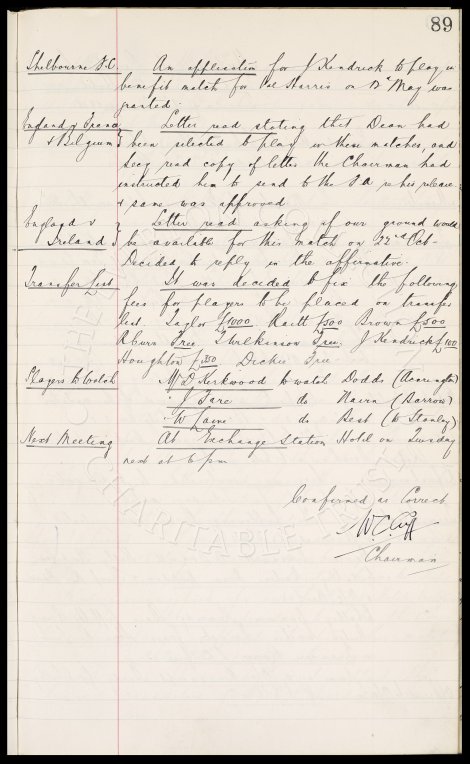 89
Shelbourne F.C. An application for J Kendrick to play in
benefit match for Val Harris on May was
granted.
England v France Letter read stating that Dean had
& Belgium been selected to play in these matches, and
Secy read copy of letter the Chairman had
instructed him to send to the F A re his release
& same was approved
England v Letter read asking if our ground would
Ireland be available for this match on 22nd Oct-
Decided to reply in the affirmative.
Transfer List It was decided to fix the following
fees for players to be placed on transfer
list. Taylor £1000 Raitt £500 Brown £500
Free, Free. J Kendrick £100
Houghton £350 Dickie Free.
Players to Watch Mr D Kirkwood to watch Dodds (Accrington)
J Fare do Nairn (Barrow)
W do Best (W Stanley)
Next Meeting At Exchange Station Hotel on Tuesday
next at 6 pm
Confirmed as Correct
W.C. Cuff
Chairman
CHARITABLE TRUST